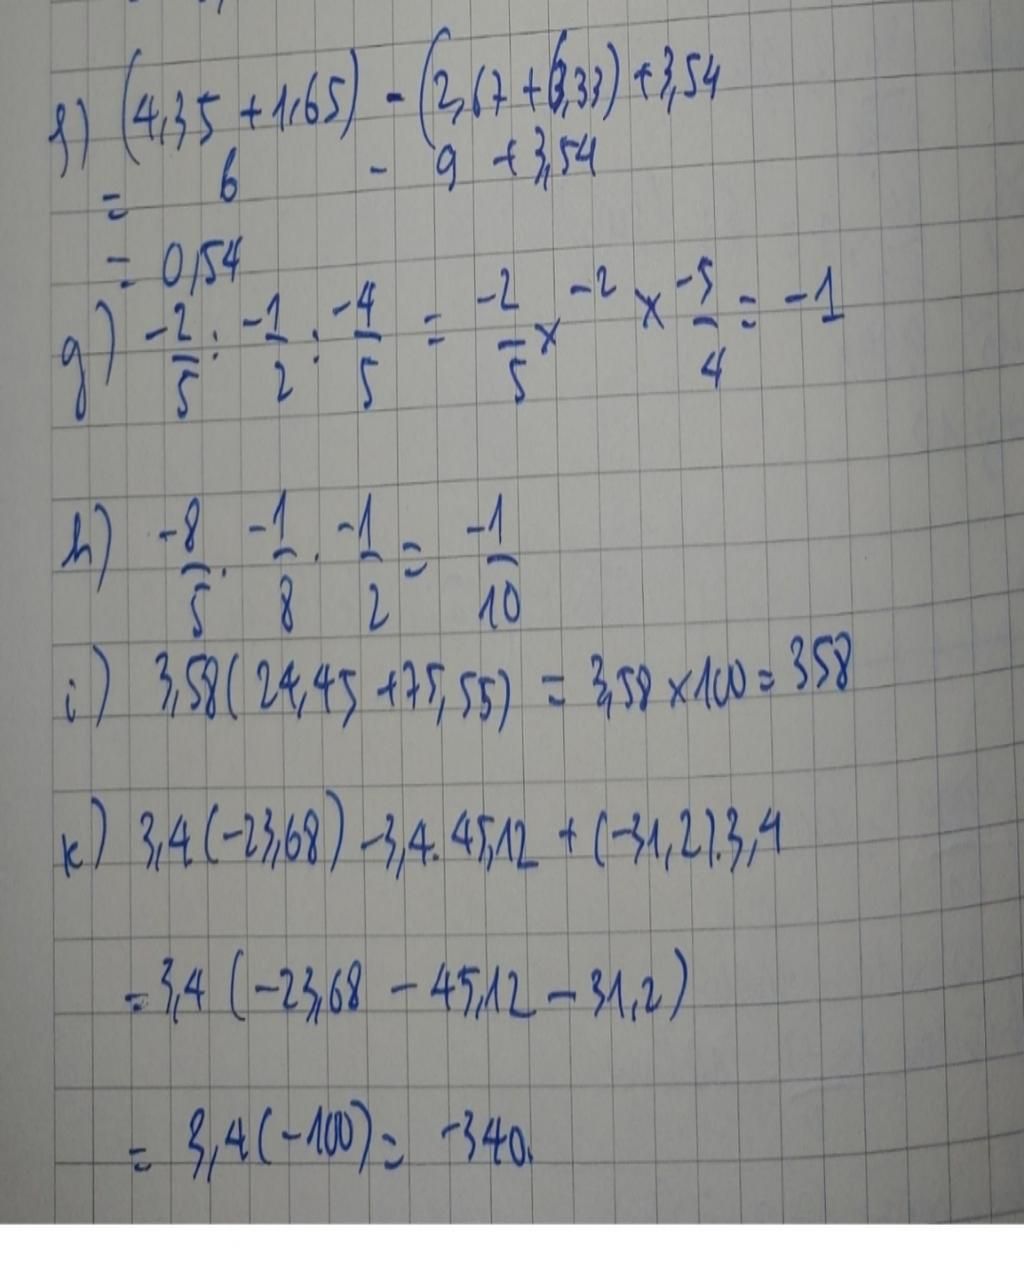 f) (4,35 + 1,65) - (2,67 + 6,33) + 3,54
= 6 - 9 + 3,54
= 0,54
g) -2/5 : -1/2 : -4/5 = -2/5 × -2 × -5/4 = -1
h) -8/5 . -1/8 . -1/2 = -1/10
i) 3,58(24,45 + 75,55) = 3,58 × 100 = 358
k) 3,4(-23,68) - 3,4. 45,12 + (-31,2).3,4
= 3,4 (-23,68 - 45,12 - 31,2)
= 3,4(-100) = -340.